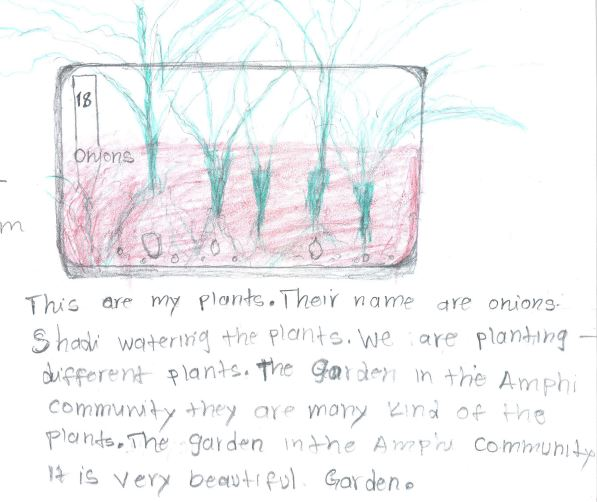 18
Onions
m
This are my plants. Their name are onions.
Shadi watering the plants. We are planting -
different plants. The Garden in the Amphi
community they are many kind of the
plants. The garden in the Amphi community
It is very beautiful. Garden.